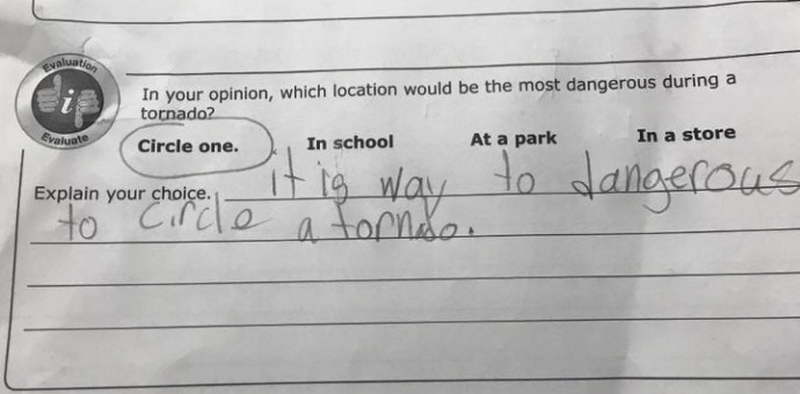 Evaluation
i
Evaluate
In your opinion, which location would be the most dangerous during a
tornado?
Circle one. In school At a park In a store
Explain your choice. it is way to dangerous
to circle a tornado.